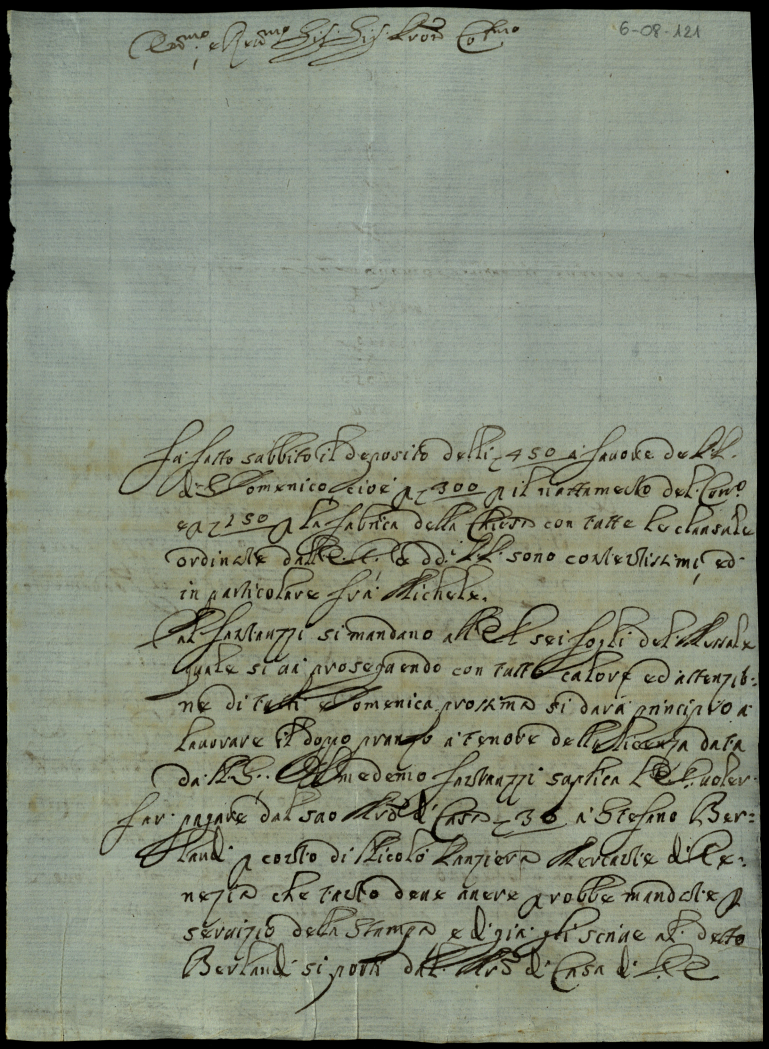 Em.mo e Rev.mo Sig. Sig. Pron Col.mo 6-08-121
Fu fatto subbito il deposito delli 450 a favore de PP.
di S. Domenico, cioè p 300 p il riattamento del Con.o
e p 150 p la fabrica della Chiesa con tutte le clausule
ordinate dall' E. V. e dd.i PP. sono contentissimi, ed
in particolare fra Michele.
Al Fantauzzi si mandano all' sei fogli del Messale
quale si va proseguendo con tutto calore ed attenzio-
ne di tutti e Domenica prossima si darà principio a
lavorare il dopo pranzo a tenore della licenza data
da N. S. Il medemo Fantauzzi suplica l' E. V. voler
far pagare dal suo Mro di Casa 36 a Stefano Ber=
landi p conto di Nicolò Mercante di Ve=
nezia che tanto deve avere p robbe mandate p
servizio della Stampa e di già gli scrive al detto
Berlandi si porti dal Mro di Casa di V. E.